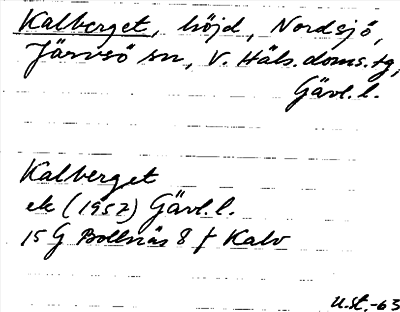 Kalberget, höjd, Nordsjö,
Järvsö sn, V. Häls. doms. tg,
Gävl. l.
Kalberget
ek (1957) Gävl. l.
15 G Bollnäs 8 f Kalv
U.St.-63